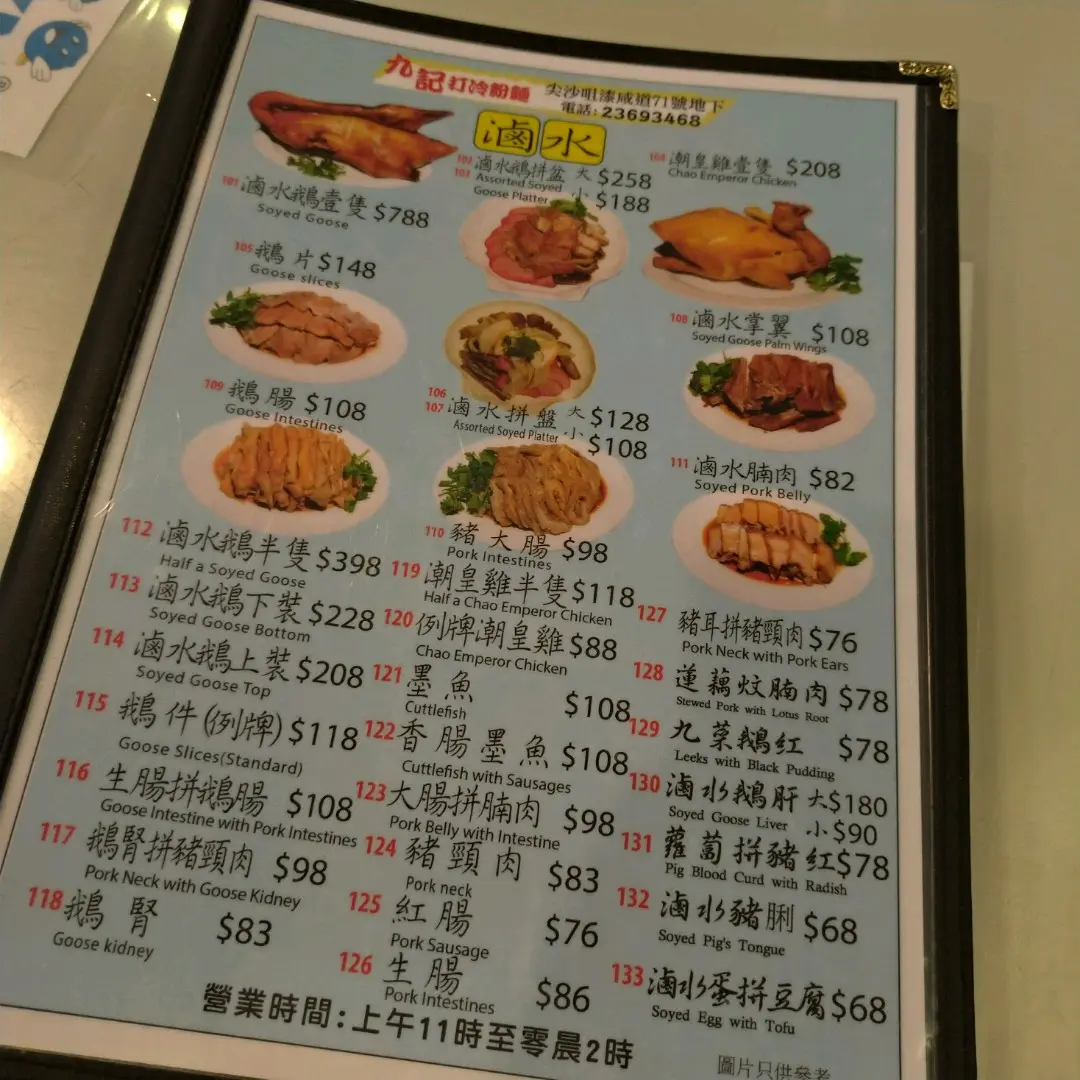 九記打冷粉麵 尖沙咀漆咸道71號地下
電話: 23693468
滷水
101 滷水鵝壹隻 $788
Soyed Goose
102 滷水鵝拼盆 大 $258
103 Assorted Soyed 小 $188
Goose Platter
104 潮皇雞壹隻 $208
Chao Emperor Chicken
105 鵝片 $148
Goose slices
108 滷水掌翼 $108
Soyed Goose Palm Wings
109 鵝腸 $108
Goose Intestines
106 滷水拼盤 大 $128
107 Assorted Soyed Platter 小 $108
111 滷水腩肉 $82
Soyed Pork Belly
110 豬大腸 $98
Pork Intestines
112 滷水鵝半隻 $398
Half a Soyed Goose
113 滷水鵝下裝 $228
Soyed Goose Bottom
114 滷水鵝上裝 $208
Soyed Goose Top
115 鵝件(例牌) $118
Goose Slices(Standard)
116 生腸拼鵝腸 $108
Goose Intestine with Pork Intestines
117 鵝腎拼豬頸肉 $98
Pork Neck with Goose Kidney
118 鵝腎 $83
Goose kidney
119 潮皇雞半隻 $118
Half a Chao Emperor Chicken
120 例牌潮皇雞 $88
Chao Emperor Chicken
121 墨魚 $108
Cuttlefish
122 香腸墨魚 $108
Cuttlefish with Sausages
123 大腸拼腩肉 $98
Pork Belly with Intestine
124 豬頸肉 $83
Pork neck
125 紅腸 $76
Pork Sausage
126 生腸 $86
Pork Intestines
127 豬耳拼豬頸肉 $76
Pork Neck with Pork Ears
128 蓮藕炆腩肉 $78
Stewed Pork with Lotus Root
129 九菜鵝紅 $78
Leeks with Black Pudding
130 滷水鵝肝 大$180
Soyed Goose Liver 小$90
131 蘿蔔拼豬紅 $78
Pig Blood Curd with Radish
132 滷水豬脷 $68
Soyed Pig's Tongue
133 滷水蛋拼豆腐 $68
Soyed Egg with Tofu
營業時間:上午11時至零晨2時
圖片只供參考